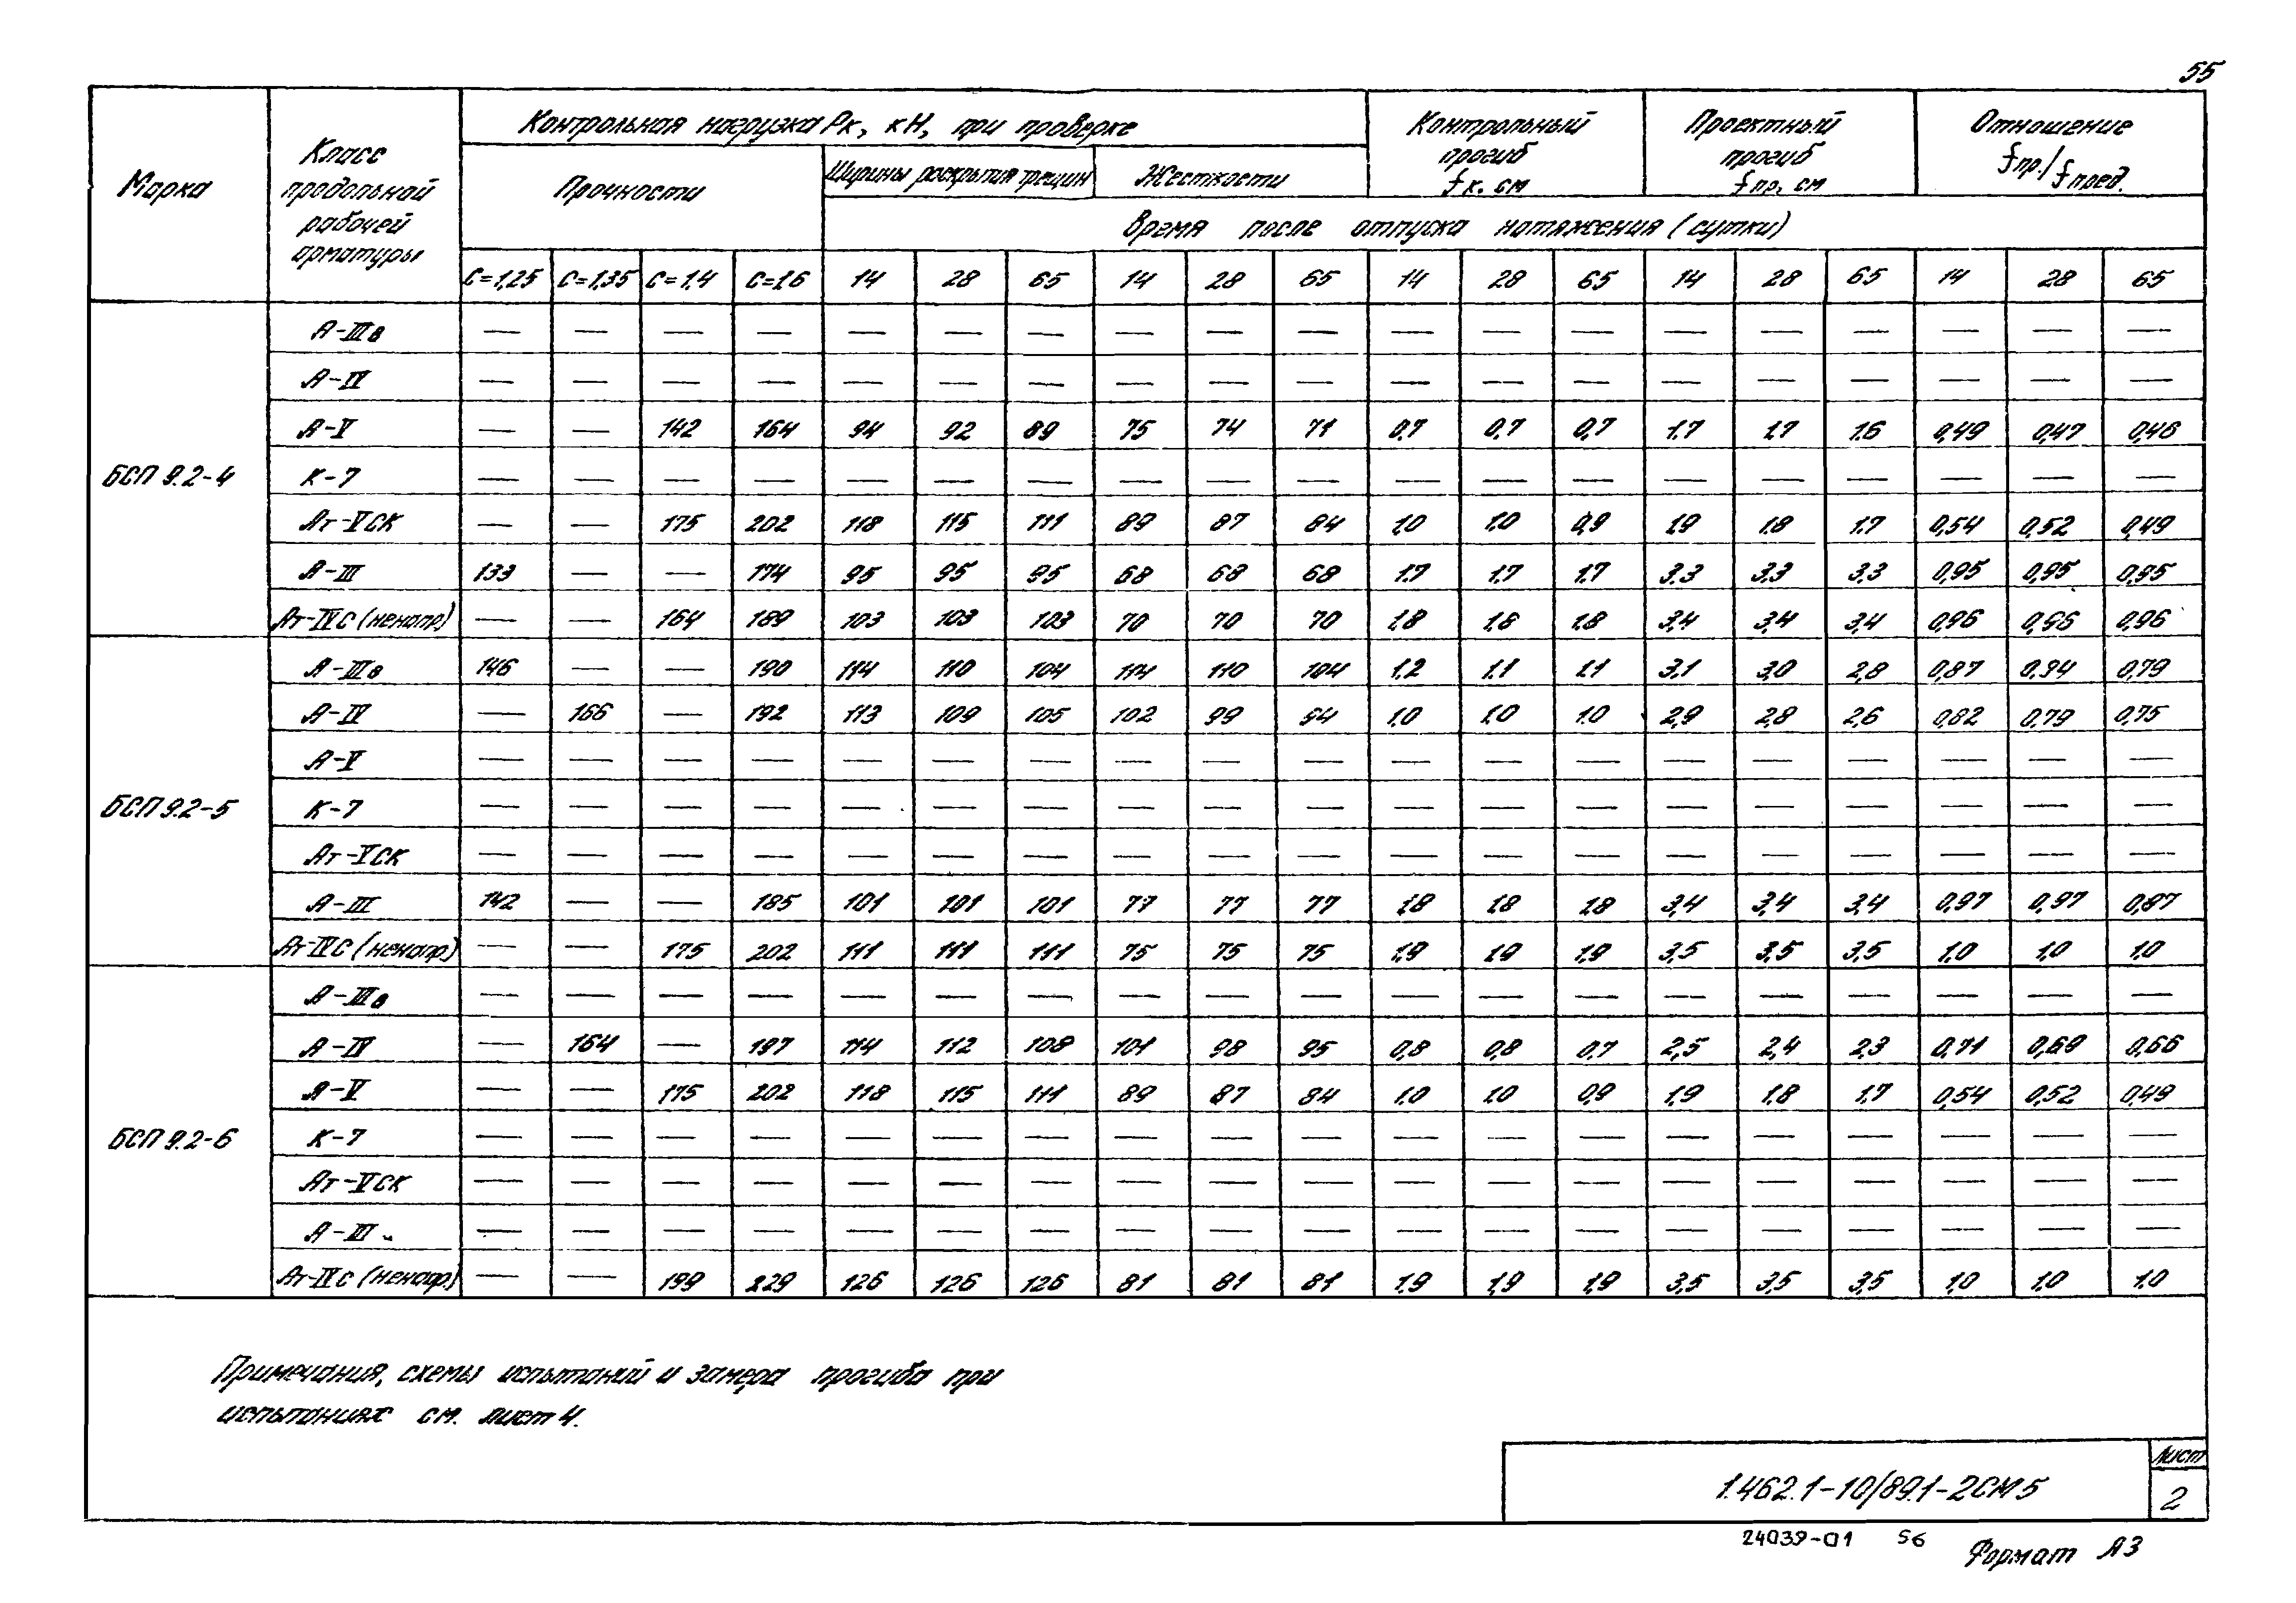 55
Марка
Класс продольной рабочей арматуры
Контрольная нагрузка Рк, кН, при проверке
Контрольный прогиб fк. см
Проектный прогиб fпр, см
Отношение fпр./fпред.
Прочности
Ширины раскрытия трещин
Жесткости
Время после отпуска натяжения (сутки)
С=1,25 С=1,35 С=1,4 С=1,6 14 28 65 14 28 65 14 28 65 14 28 65 14 28 65
БСП 9.2-4
А-IIIв — — — — — — — — — — — — — — — — — — —
А-IV — — — — — — — — — — — — — — — — — — —
А-V — — 142 164 94 92 89 75 74 71 0,7 0,7 0,7 1.7 1,7 1.6 0,49 0,47 0,46
К-7 — — — — — — — — — — — — — — — — — — —
Ат-VСК — — 175 202 118 115 111 89 87 84 1,0 1.0 0,9 1.9 1.8 1.7 0,54 0,52 0,49
А-III 133 — — 174 95 95 95 68 68 68 1.7 1.7 1.7 3.3 3,3 3,3 0,95 0,95 0,95
Ат-IVС (ненапр) — — 164 189 103 103 103 70 70 70 1,8 1.8 1.8 3,4 3,4 3,4 0,96 0,96 0,96
БСП 9.2-5
А-IIIв 146 — — 190 114 110 104 114 110 104 1,2 1.1 1.1 3,1 3,0 2,8 0,87 0,94 0,79
А-IV — 166 — 192 113 109 105 102 99 94 1.0 1.0 1.0 2,9 2,8 2,6 0,82 0,79 0,75
А-V — — — — — — — — — — — — — — — — — — —
К-7 — — — — — — — — — — — — — — — — — — —
Ат-VСК — — — — — — — — — — — — — — — — — — —
А-III 142 — — 185 101 101 101 77 77 77 1,8 1,8 1,8 3,4 3,4 3,4 0,97 0,97 0,97
Ат-IVС (ненапр) — — 175 202 111 111 111 75 75 75 1,9 1,9 1,9 3,5 3,5 3,5 1,0 1,0 1,0
БСП 9.2-6
А-IIIв — — — — — — — — — — — — — — — — — — —
А-IV — 164 — 197 114 112 108 101 98 95 0,8 0,8 0,7 2,5 2,4 2,3 0,71 0,69 0,66
А-V — — 175 202 118 115 111 89 87 84 1,0 1.0 0,9 1,9 1,8 1,7 0,54 0,52 0,49
К-7 — — — — — — — — — — — — — — — — — — —
Ат-VСК — — — — — — — — — — — — — — — — — — —
А-III — — — — — — — — — — — — — — — — — — —
Ат-IVС (ненапр) — — 199 229 126 126 126 81 81 81 1,9 1,9 1,9 3,5 3,5 3,5 1,0 1,0 1,0
Примечания, схемы испытаний и замера прогиба при
испытаниях см. лист 4.
1.462.1-10/89.1-2СМ5
Лист
2
24039-01 56
Формат А3